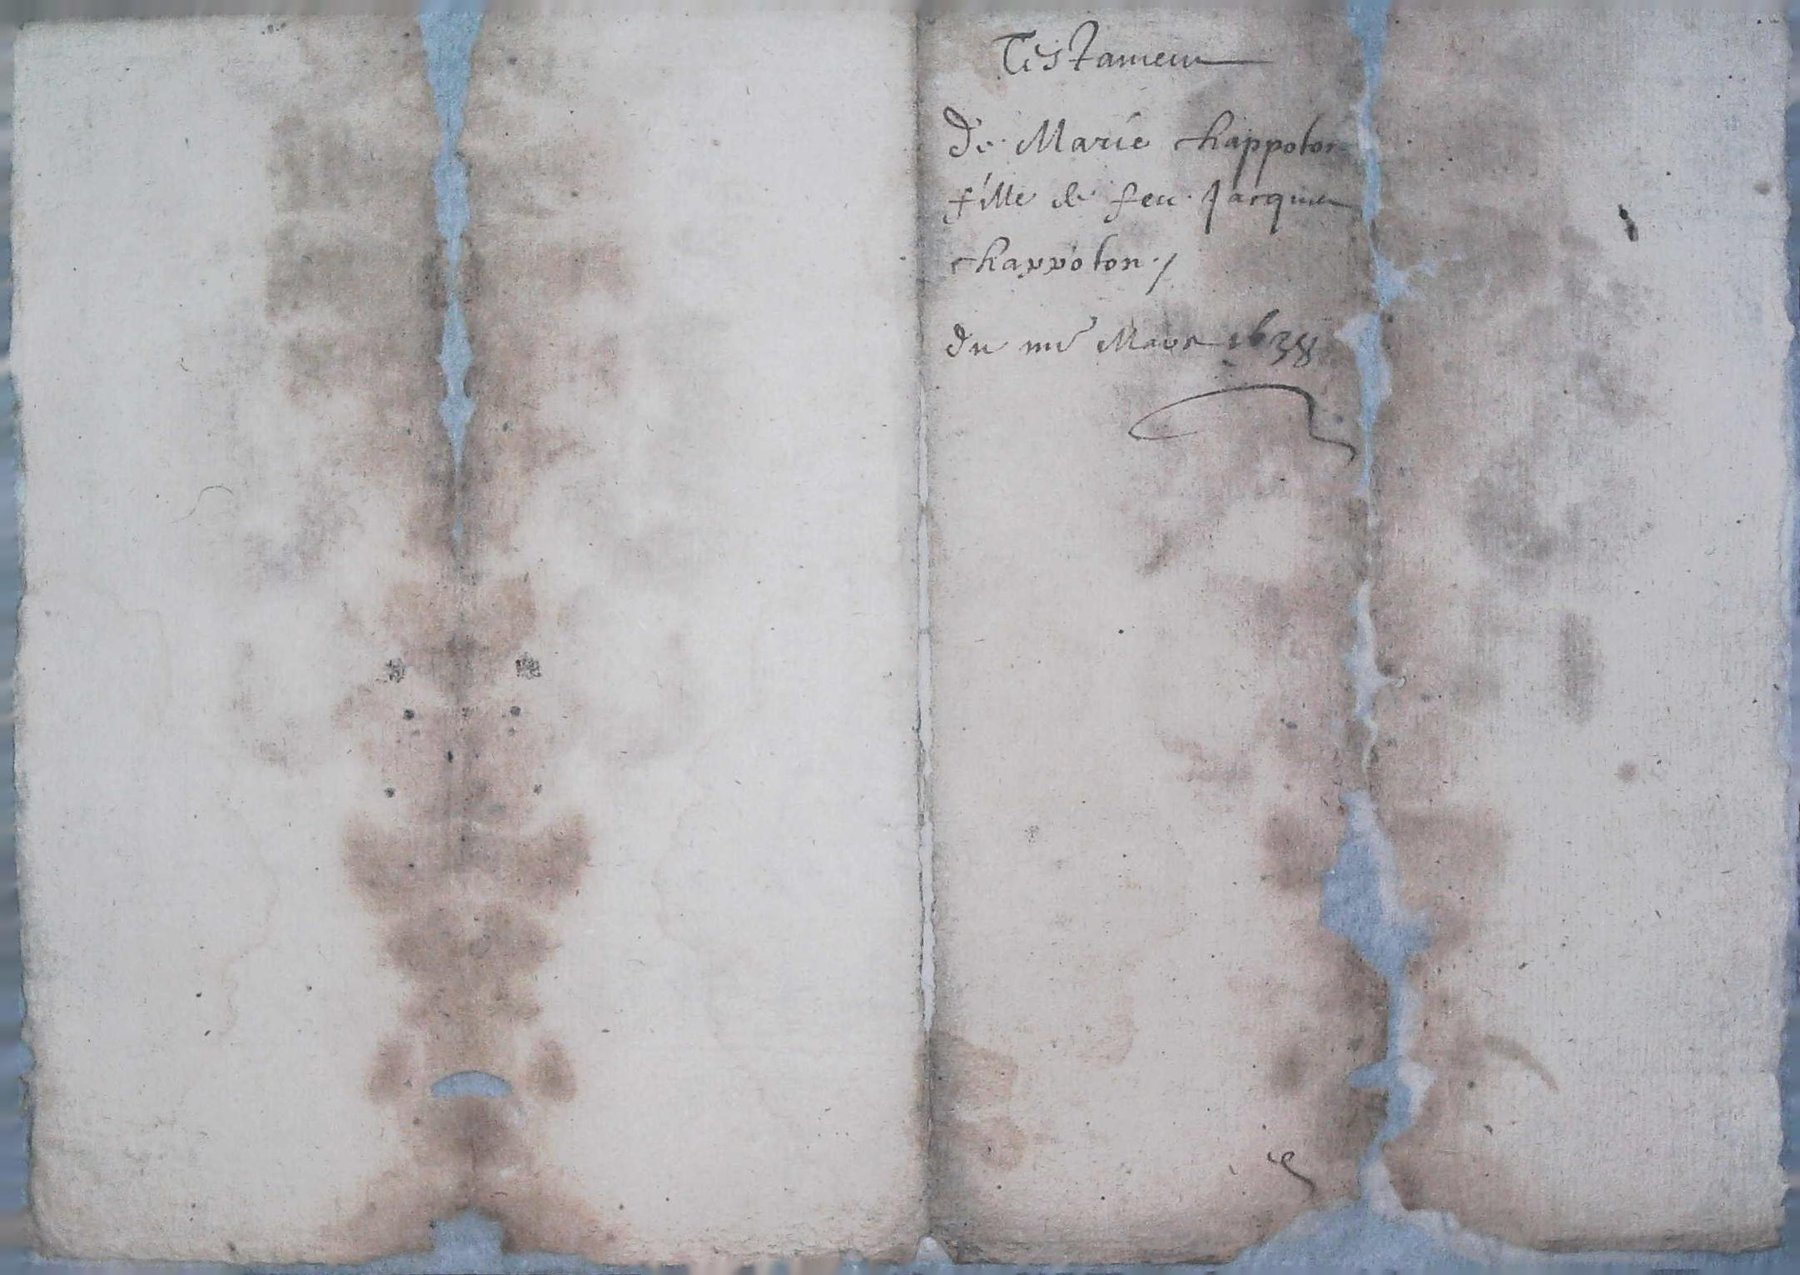 Testament
de Marie Chappoton
fille de feu Jacques
Chappoton /
du iiiie Mars 1638